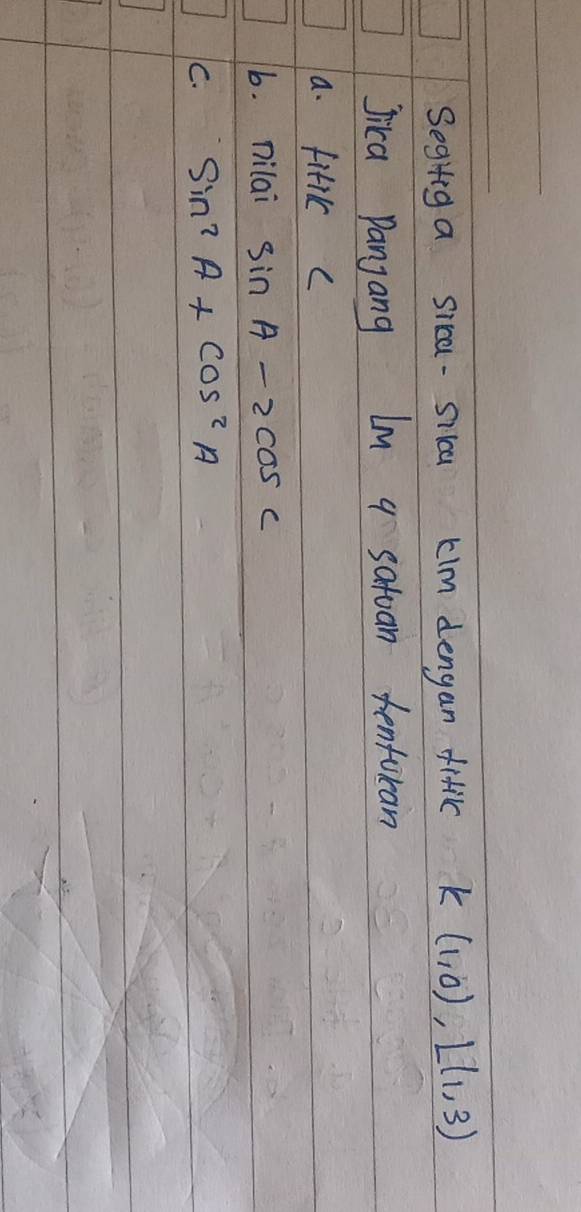 Segitiga siku-siku klm dengan titik k (1,0), L(1,3)
Jika Panjang LM 4 satuan tentukan
a. titik C
b. nilai sin A - 2 cos C
c. Sin² A + cos² A